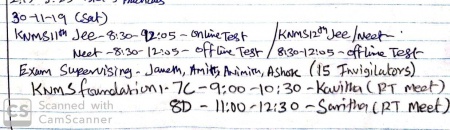 30-11-19 (Sat)
KNMS 11th Jee - 8:30-12:05 - online Test / KNMS 12th Jee/Neet -
Neet - 8:30-12:05 - offline Test / 8:30-12:05 - offline Test
Exam Supervising - Janeth, Amitj, Ashok (15 Invigilators)
KNMS foundation:- 7C - 9:00 - 10:30 - Kavitha (PT meet)
8D - 11:00 - 12:30 - Saritha (PT meet)
CS Scanned with
CamScanner